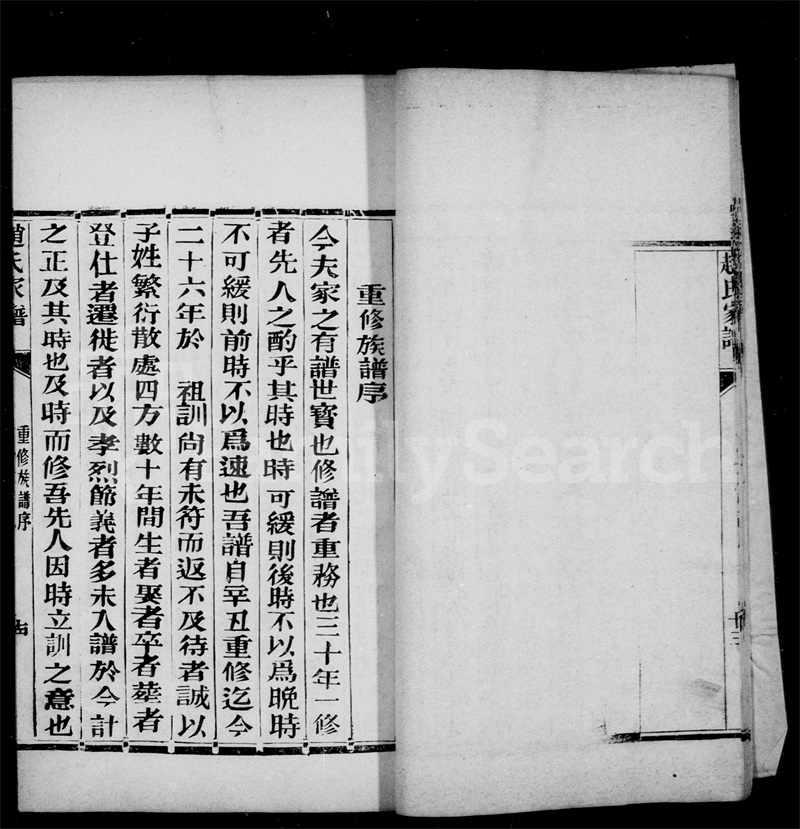 趙氏家譜
十三
重修族譜序
今夫家之有譜世寳也修譜者重務也三十年一修
者先人之酌乎其時也時可緩則後時不以爲晩時
不可緩則前時不以爲速也吾譜自辛丑重修迄今
二十六年於 祖訓尙有未符而返不及待者誠以
子姓繁衍散處四方數十年間生者娶者卒者葬者
登仕者遷徙者以及孝烈節義者多未入譜於今計
之正及其時也及時而修吾先人因時立訓之意也
趙氏家譜
重修族譜序
FamilySearch